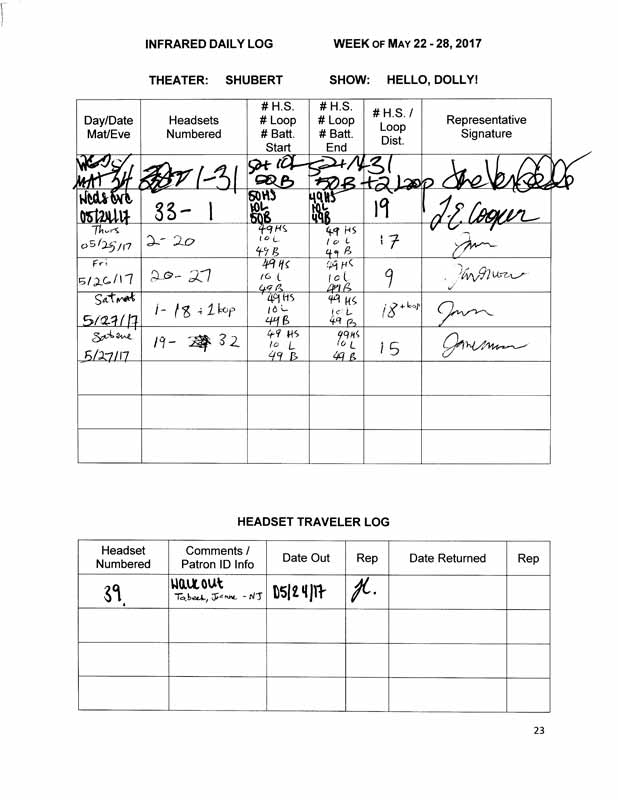 INFRARED DAILY LOG WEEK OF MAY 22 - 28, 2017
THEATER: SHUBERT SHOW: HELLO, DOLLY!
Day/Date Mat/Eve Headsets Numbered # H.S. # Loop # Batt. Start # H.S. # Loop # Batt. End # H.S. / Loop Dist. Representative Signature
Weds MAT 1-31 50B 50B +2 Loop 31
Weds Eve 05/24/17 33 - 1 50HS 10L 50B 49HS 10L 49B 19 J.E. Cooper
Thurs 05/25/17 2 - 20 49HS 10L 49B 49HS 10L 49B 17
Fri 5/26/17 20 - 27 49HS 10L 49B 49HS 10L 49B 9
Sat mat 5/27/17 1- 18 + 1 loop 49HS 10L 49B 49HS 10L 49B 18 + loop
Sat eve 5/27/17 19 - 32 49 HS 10 L 49 B 49HS 10 L 49 B 15
HEADSET TRAVELER LOG
Headset Numbered Comments / Patron ID Info Date Out Rep Date Returned Rep
39. Walk out 05/24/17
- NJ
23